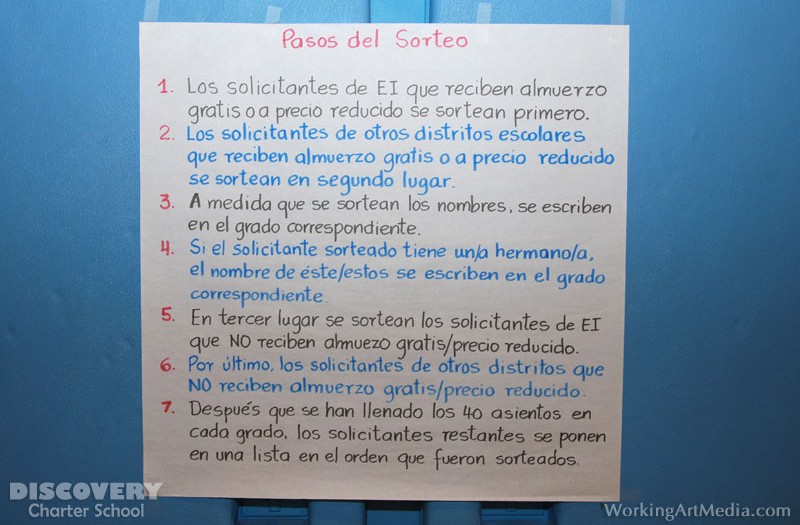 Pasos del Sorteo
1. Los solicitantes de EI que reciben almuerzo
gratis o a precio reducido se sortean primero.
2. Los solicitantes de otros distritos escolares
que reciben almuerzo gratis o a precio reducido
se sortean en segundo lugar.
3. A medida que se sortean los nombres, se escriben
en el grado correspondiente.
4. Si el solicitante sorteado tiene un/a hermano/a,
el nombre de éste/estos se escriben en el grado
correspondiente.
5. En tercer lugar se sortean los solicitantes de EI
que NO reciben almuezo gratis/precio reducido.
6. Por último, los solicitantes de otros distritos que
NO reciben almuerzo gratis/precio reducido.
7. Después que se han llenado los 40 asientos en
cada grado, los solicitantes restantes se ponen
en una lista en el orden que fueron sorteados.
DISCOVERY
Charter School
WorkingArtMedia.com